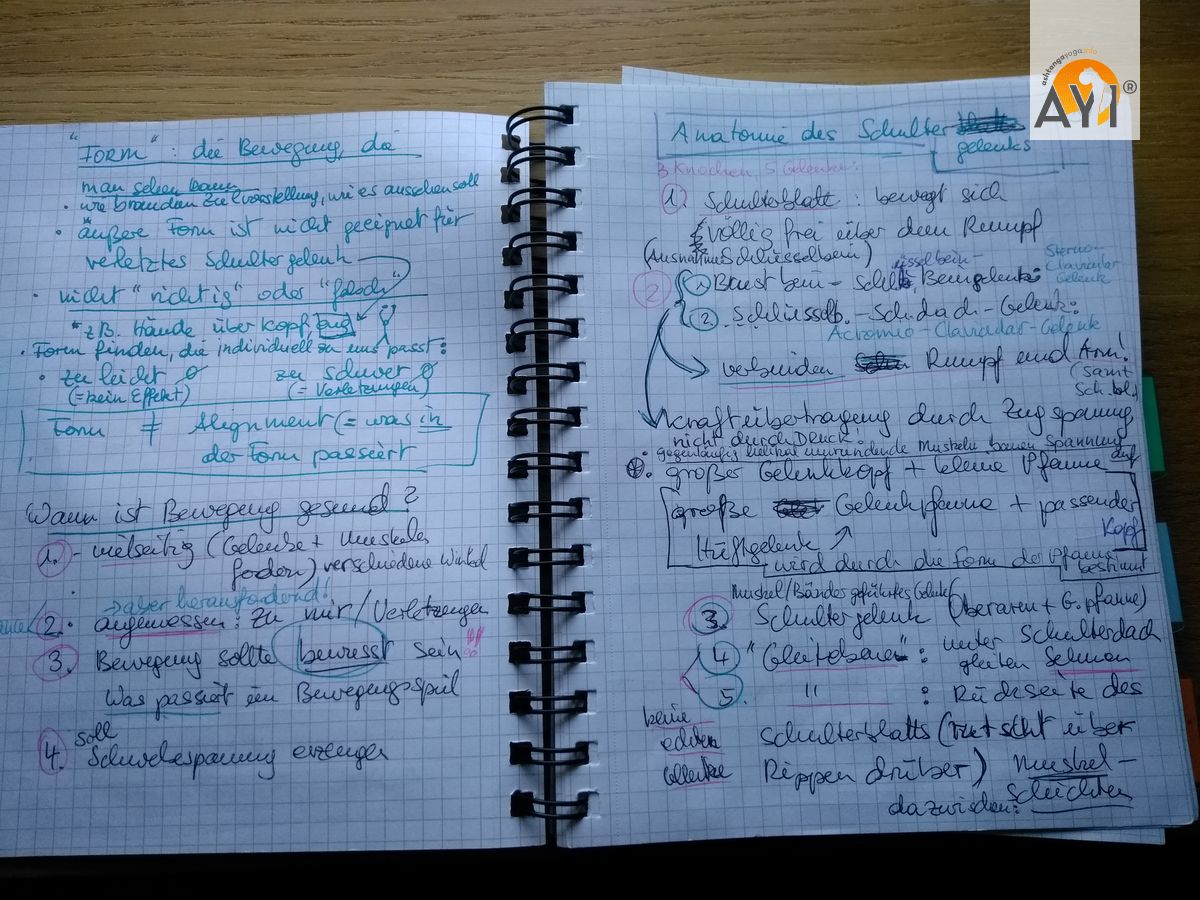 "Form": die Bewegung, die
man sehen kann
• wir brauchen Zielvorstellung, wie es aussehen soll
• äußere Form ist nicht geeignet für
verletztes Schultergelenk
• nicht "richtig" oder "falsch"
z.B. Hände über Kopf,
• Form finden, die individuell zu uns passt:
• zu leicht zu schwer
(= kein Effekt) (= Verletzungen)
Form ≠ Alignment (= was in
der Form passiert
Wann ist Bewegung gesund?
1. - vielseitig (Gelenke + Muskeln
fordern) verschiedene Winkel
→ aber herausfordernd!
2. angemessen: Zu mir/Verletzungen
3. Bewegung sollte bewusst sein!!!
Was passiert im Bewegungsspiel
soll
4. Schwebespannung erzeugen
ashtangayoga.info
AYI®
Anatomie des Schulter
gelenks
3 Knochen 5 Gelenke:
1. Schulterblatt: bewegt sich
völlig frei über dem Rumpf
(Ausnahme Schlüsselbein)
Sterno-
Clavicular
Gelenk
2 1 Brustbein - Schlüsselbein-gelenk:
2. Schlüsselb. - Schdach - Gelenk:
Acromio - Clavicular - Gelenk
→ verbinden Rumpf und Arm!
(samt
Schbl.)
Kraftübertragung durch Zugspannung
nicht durch Druck!
• gegenläufig helikal windende Muskeln bauen Spannung auf
• großer Gelenkkopf + kleine Pfanne
große Gelenkpfanne + passender
Kopf
Hüftgelenk
wird durch die Form der Pfanne
bestimmt
Muskel/Bänder geführtes Gelenk
3. Schultergelenk (Oberarm + G.pfanne)
4 "Gleitebene": unter Schulterdach
gleiten Sehnen
5. " : Rückseite des
keine
echten
Gelenke
Schulterblatts (rutscht über
Rippen drüber) Muskel-
schichten
dazwischen: